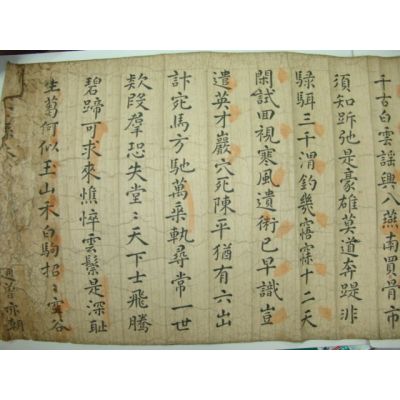 千古白雲謠與八燕南買骨市
須知跅弛是豪雄莫道奔踶非
騄駬三千渭釣幾寤寐十二天
閑試回視寒風遺術已早識豈
遣英才巖穴死陳平猶有六出
計宛馬方馳萬乘軌尋常一世
欵段羣恐失堂〻天下士飛騰
碧蹄可求來憔悴雲鬃是深恥
生芻何似玉山禾白駒招〻空谷